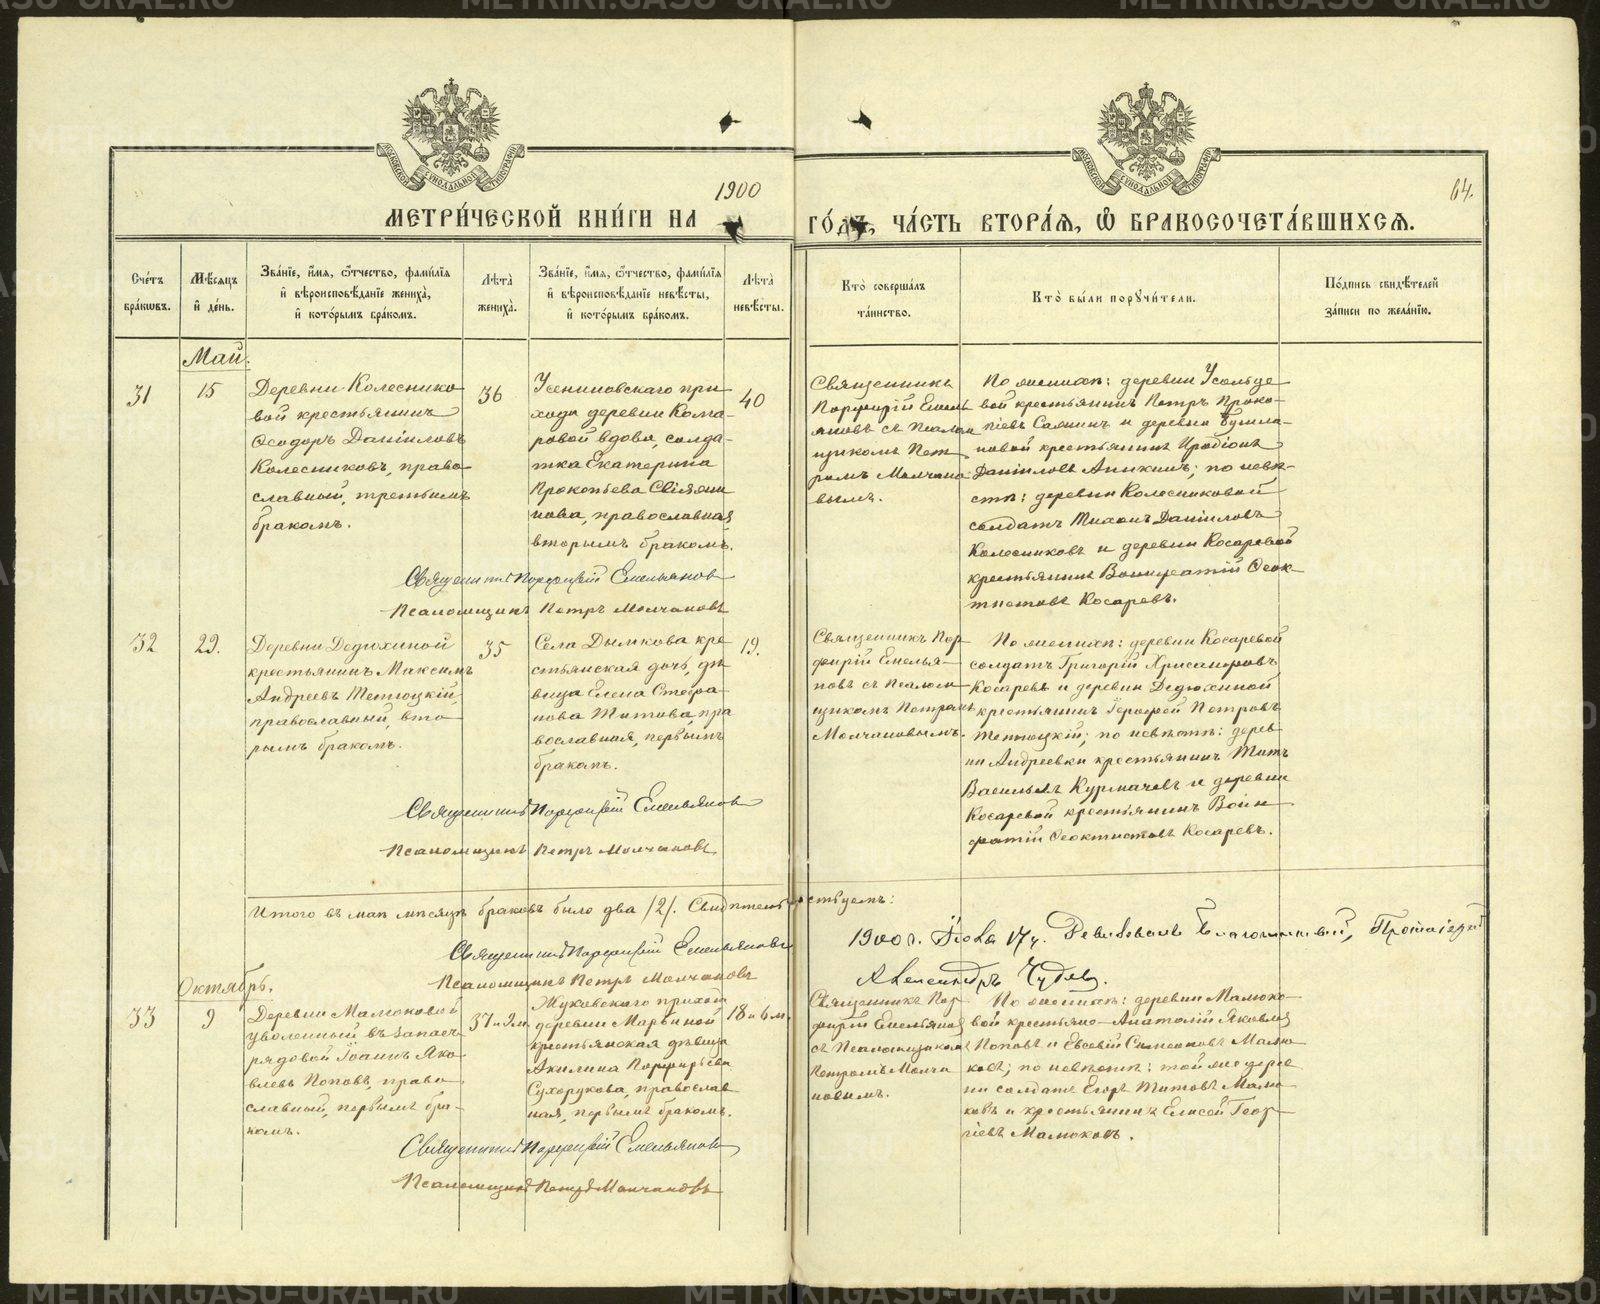 МОСКОВСКОЙ СѴНОДАЛЬНОЙ ТИПОГРАФІИ
МОСКОВСКОЙ СѴНОДАЛЬНОЙ ТИПОГРАФІИ
1900
64.
МЕТРИ́ЧЕСКОЙ КНИ́ГИ НА ГО́ДЪ, ЧА́СТЬ ВТОРА́Я, Ѽ БРАКОСОЧЕТА́ВШИХСЯ.
Сче́тъ бра́кѡвъ.
Мѣ́сяцъ и҆ де́нь.
Зва́нїе, и҆́мя, ѻ҆́тчество, фами́лїя и҆ вѣроисповѣ́данїе жениха̀, и҆ кото́рымъ бра́комъ.
Лѣ́та жениха̀.
Зва́нїе, и҆́мя, ѻ҆́тчество, фами́лїя и҆ вѣроисповѣ́данїе невѣ́сты, и҆ кото́рымъ бра́комъ.
Лѣ́та невѣ́сты.
Кто̀ соверша́лъ та́инство.
Кто̀ бы́ли порꙋчи́тели.
По́дпись свидѣ́телей за́писи по жела́нїю.
Май.
31
15
Деревни Колеснико
вой крестьянинъ
Ѳеодоръ Даніиловъ
Колесниковъ, право
славный, третьимъ
бракомъ.
36
прихода деревни Кома-
ровой вдова, солда-
тка Екатерина
Прокопьева
нова, православная,
вторымъ бракомъ.
40
Священникъ
Порфирій Емель
яновъ съ Псалом
щикомъ Пет
ромъ Молчано
вымъ.
По женихѣ: деревни Усольце
вой крестьянинъ Петръ Проко-
піевъ и деревни
новой крестьянинъ Иродіонъ
Даніиловъ Аникинъ; по невѣ-
стѣ: деревни Колесниковой
солдатъ Тихонъ Даніиловъ
Колесниковъ и деревни Косаревой
крестьянинъ Вонифатій Ѳеок-
тистовъ Косаревъ.
Священникъ Порфирій Емельяновъ
Псаломщикъ Петръ Молчановъ
32
29.
Деревни Дедюхиной
крестьянинъ Максимъ
Андреевъ Тетюцкій,
православный, вто-
рымъ бракомъ.
35
Села Дымкова кре
стьянская дочь, дѣ
вица Елена Стефа-
нова Титова, пра
вославная, первымъ
бракомъ.
19.
Священникъ Пор-
фирій Емелья-
новъ съ Псалом-
щикомъ Петромъ
Молчановымъ.
По женихѣ: деревни Косаревой
солдатъ Григорій Хрисанфовъ
Косаревъ и деревни Дедюхиной
крестьянинъ Петровъ
Тетюцкій; по невѣстѣ: дерев
ни Андреевки крестьянинъ Титъ
Васильевъ Курмачевъ и деревни
Косаревой крестьянинъ Вони
фатій Ѳеоктистовъ Косаревъ.
Священникъ Порфирій Емельяновъ
Псаломщикъ Петръ Молчановъ
Итого въ маѣ мѣсяцѣ браковъ было два /2/. Свидѣтельствуемъ:
Священникъ Порфирій Емельяновъ
Псаломщикъ Петръ Молчановъ
1900 г. 17 ч. Ревизовалъ Благочинный, Протоіерей
Александръ
Октябрь.
33
9
Деревни Малюковой
уволенный въ запасъ
рядовой Іоаннъ Яко
влевъ Поповъ, право
славный, первымъ бра-
комъ.
37 и 9 м.
Жуковскаго прихода
деревни Марьиной
крестьянская дѣвица
Акилина Порфирьева
Сухорукова, православ
ная, первымъ бракомъ.
18 и 6 м.
Священникъ Пор-
фирій Емельянов
съ Псаломщикомъ
Петромъ Молча
новымъ.
По женихѣ: деревни Малюко-
вой крестьяне Анатолій Яковлев
Поповъ и Евсевій Симеоновъ Малю
ковъ; по невѣстѣ: той же дерев
ни солдатъ Егоръ Титовъ Малю-
ковъ и крестьянинъ Елисей Геор-
гіевъ Малюковъ.
Священникъ Порфирій Емельяновъ
Псаломщикъ Петръ Молчановъ
METRIKI.GASU-URAL.RU